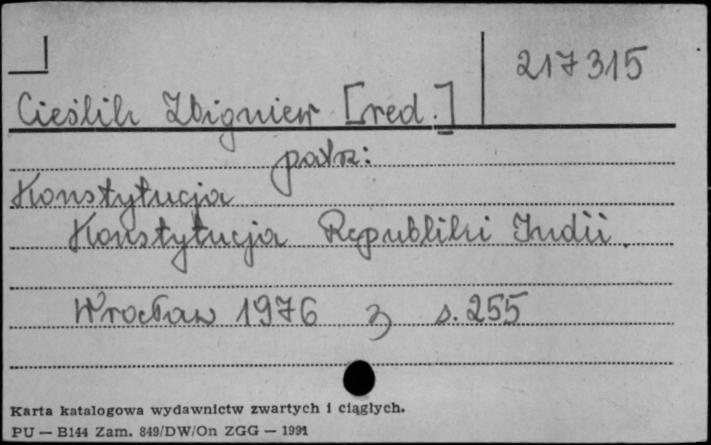 217315
Cieślik Zbigniew [red.]
patrz:
Konstytucja
Konstytucja Republiki Indii.
Wrocław 1976 s. 255
Karta katalogowa wydawnictw zwartych i ciągłych.
PU — B144 Zam. 849/DW/On ZGG — 1991